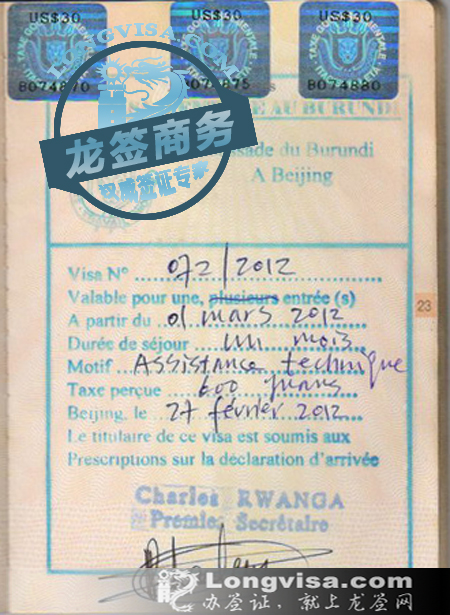 US$30 US$30 US$30
TAXE GOUVERNEMENTALE
B074870 B074875 B074880
LONGVISA.COM
龙签商务
权威签证专家
AU BURUNDI
du Burundi
A Beijing
Visa N° 072/2012
Valable pour une, plusieurs entrée (s)
A partir du 01 mars 2012
Durée de séjour un mois
Motif Assistance technique
Taxe perçue 600 yuans
Beijing, le 27 février 2012
Le titulaire de ce visa est soumis aux
Prescriptions sur la déclaration d'arrivée
23
Charles RWANGA
Premier Secrétaire
Longvisa.com
办签证,就上龙签网